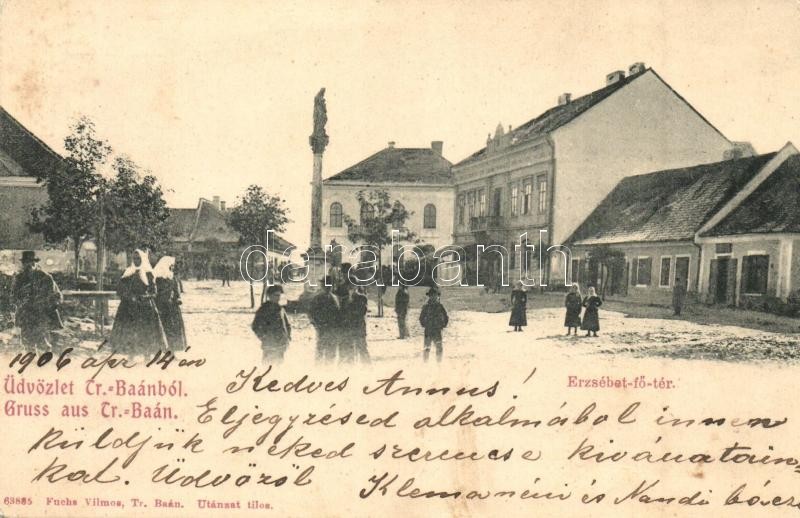 darabanth
1906 ápr 14 én
Üdvözlet Tr.-Baánból.
Gruss aus Tr.-Baán.
Erzsébet-fő-tér.
Kedves Annus!
Eljegyzésed alkalmából innen
küldjük neked szerencse kivánatain-
kat. Üdvözöl
Klemanéni és Nandi bácsi
63885 Fuchs Vilmos, Tr. Baán. Utánzat tilos.